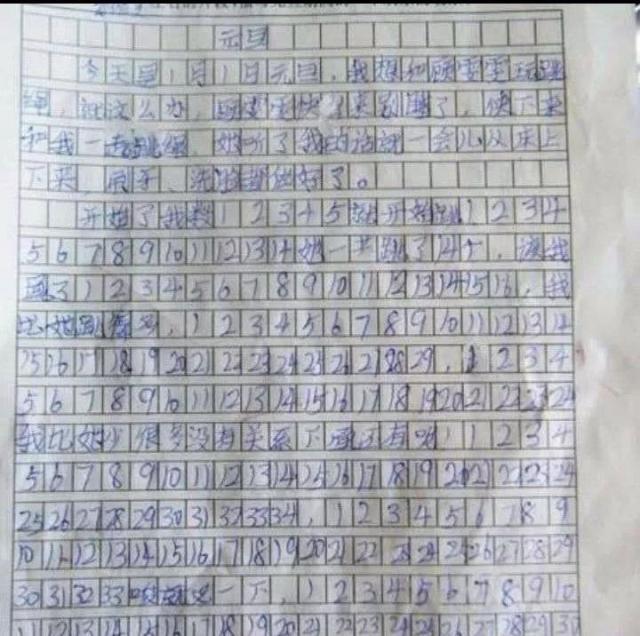 元旦
今天是1月1日元旦,我想和顾雯雯玩跳
绳,
和我一起跳绳,她听了我的话就一会儿从床上
下来,刷牙、洗脸都做好了。
开始了我数12345就开始跳1234
567891011121314她一共跳了14个,该我
了12345678910111213141516,我
比她跳得多,1234567891011121314
151617181920212223242526272829,1234
56789101112131415161718192021222324
我比她少很多没有关系下面还有呢!1234
56789101112131415161718192021222324
25262728293031323334,123456789
1011121314151617181920212223242526272829
30313233 一下,12345678910
1112131415161718192021222324252627282930